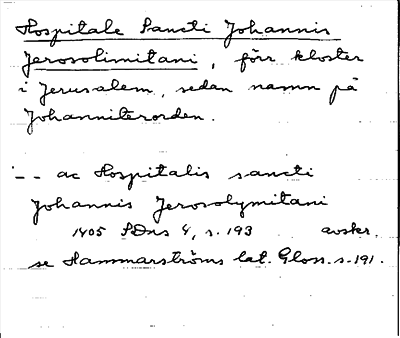 Hospitale Sancti Johannis
Jerosolimitani, förr kloster
i Jerusalem, sedan namn på
Johanniterorden.
-- ac Hospitalis sancti
Johannis Jerosolymitani
1405 SDns 4, s. 193 avskr.
se Hammarströms lat. Gloss. s. 191.